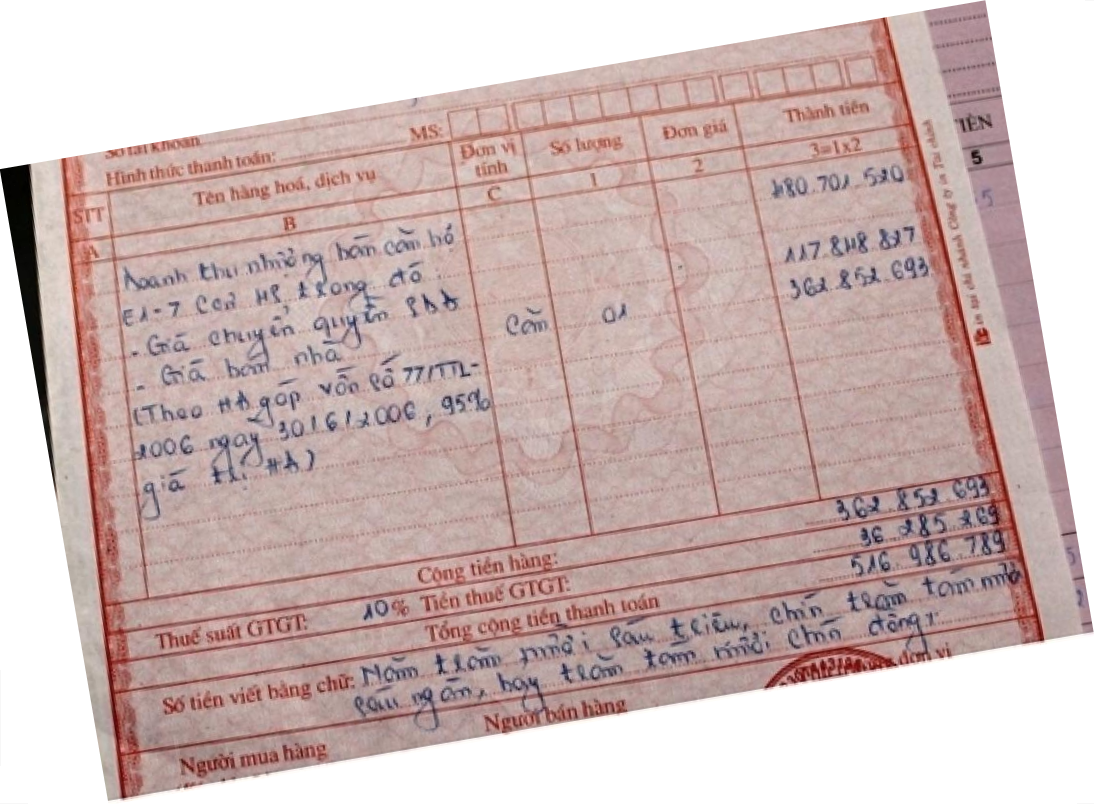 Số tài khoản
Hình thức thanh toán: MS:
STT Tên hàng hoá, dịch vụ Đơn vị tính Số lượng Đơn giá Thành tiền
A B C 1 2 3=1x2
Doanh thu nhượng bán căn hộ 480.701.520
E1-7 CCN HS, trong đó:
- Giá chuyển quyền SDĐ 117.848.827
- Giá bán nhà Căn 01 362.852.693
(Theo HĐ góp vốn số 77/TTL-
2006 ngày 30/6/2006, 95%
giá trị HĐ)
Cộng tiền hàng: 362.852.693
Thuế suất GTGT: 10% Tiền thuế GTGT: 36.285.269
Tổng cộng tiền thanh toán 516.986.789
Số tiền viết bằng chữ: Năm trăm mười sáu triệu, chín trăm tám mươi
sáu ngàn, bảy trăm tám mươi chín đồng
Người mua hàng Người bán hàng đơn vị
In tại chi nhánh Công ty in Tài chính
TIỀN
5